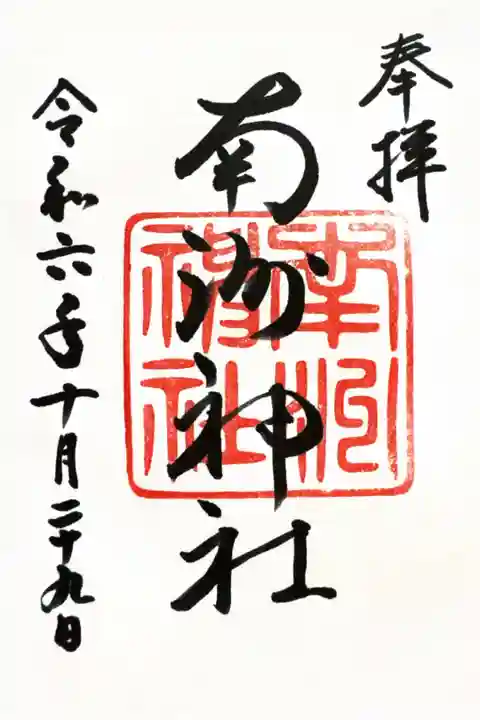 奉拝
南洲神社
南洲神社
令和六年十月二十九日